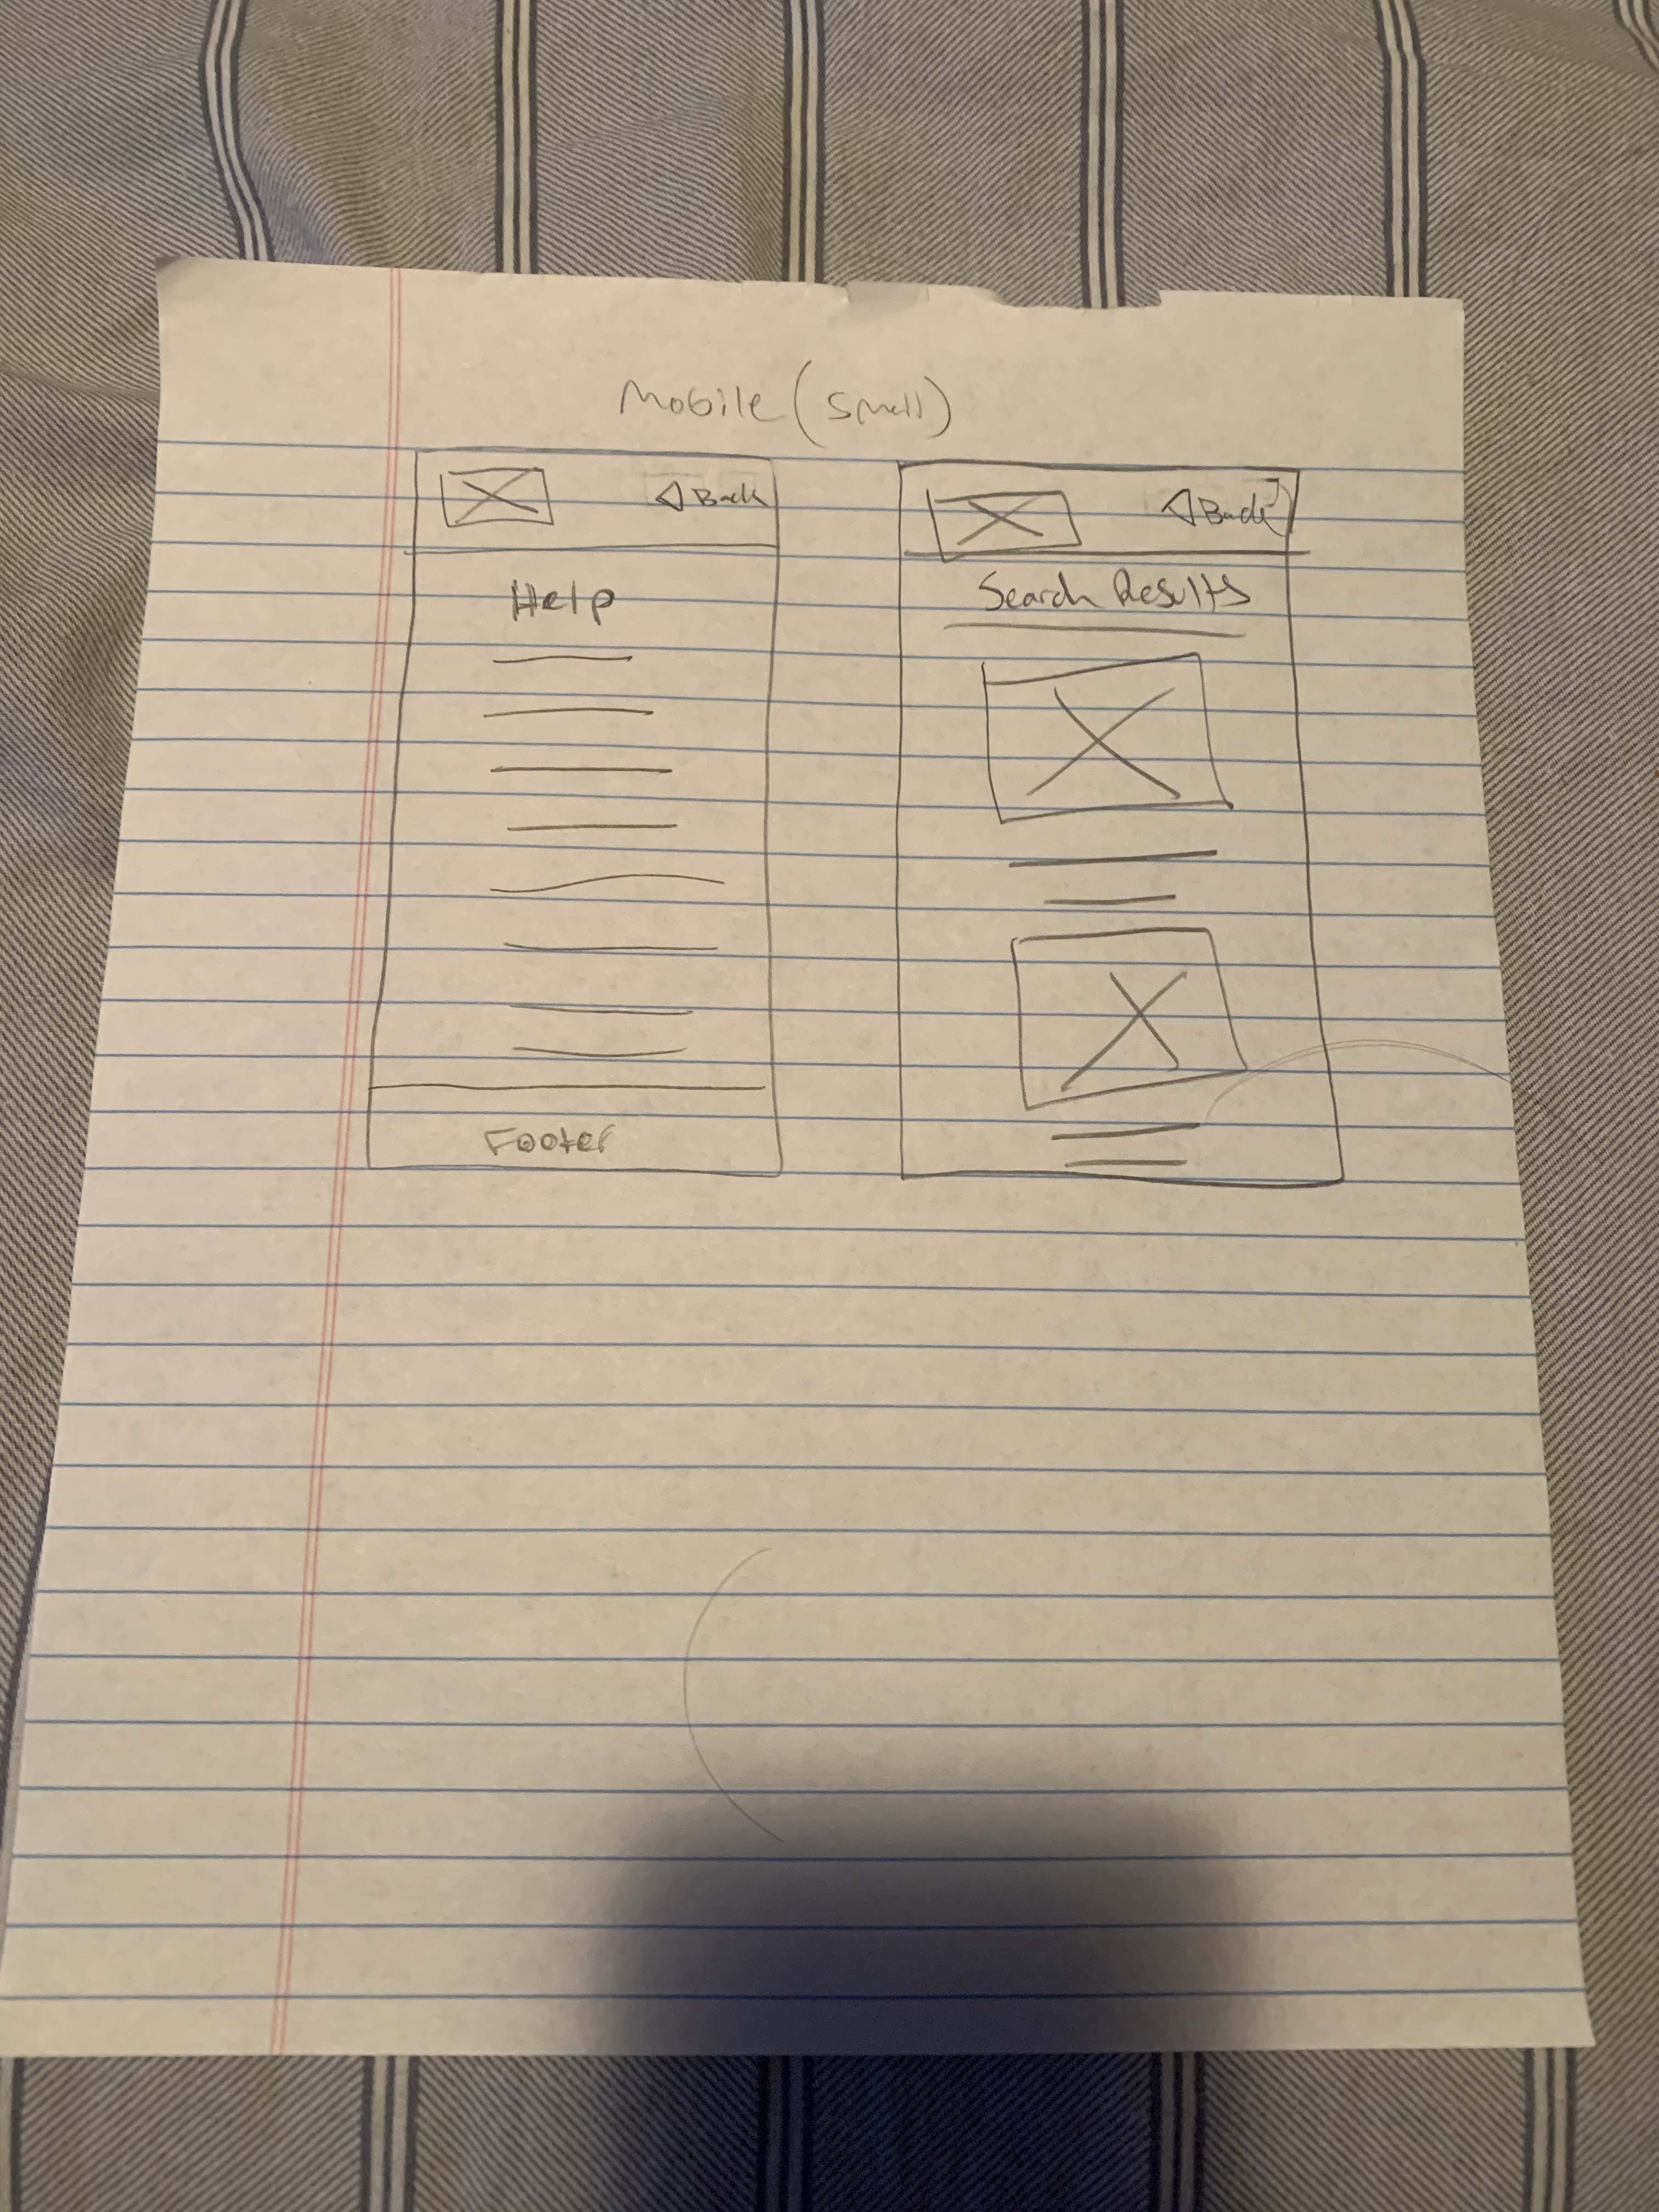 Mobile (small)
Back
Help
Footer
Back
Search Results